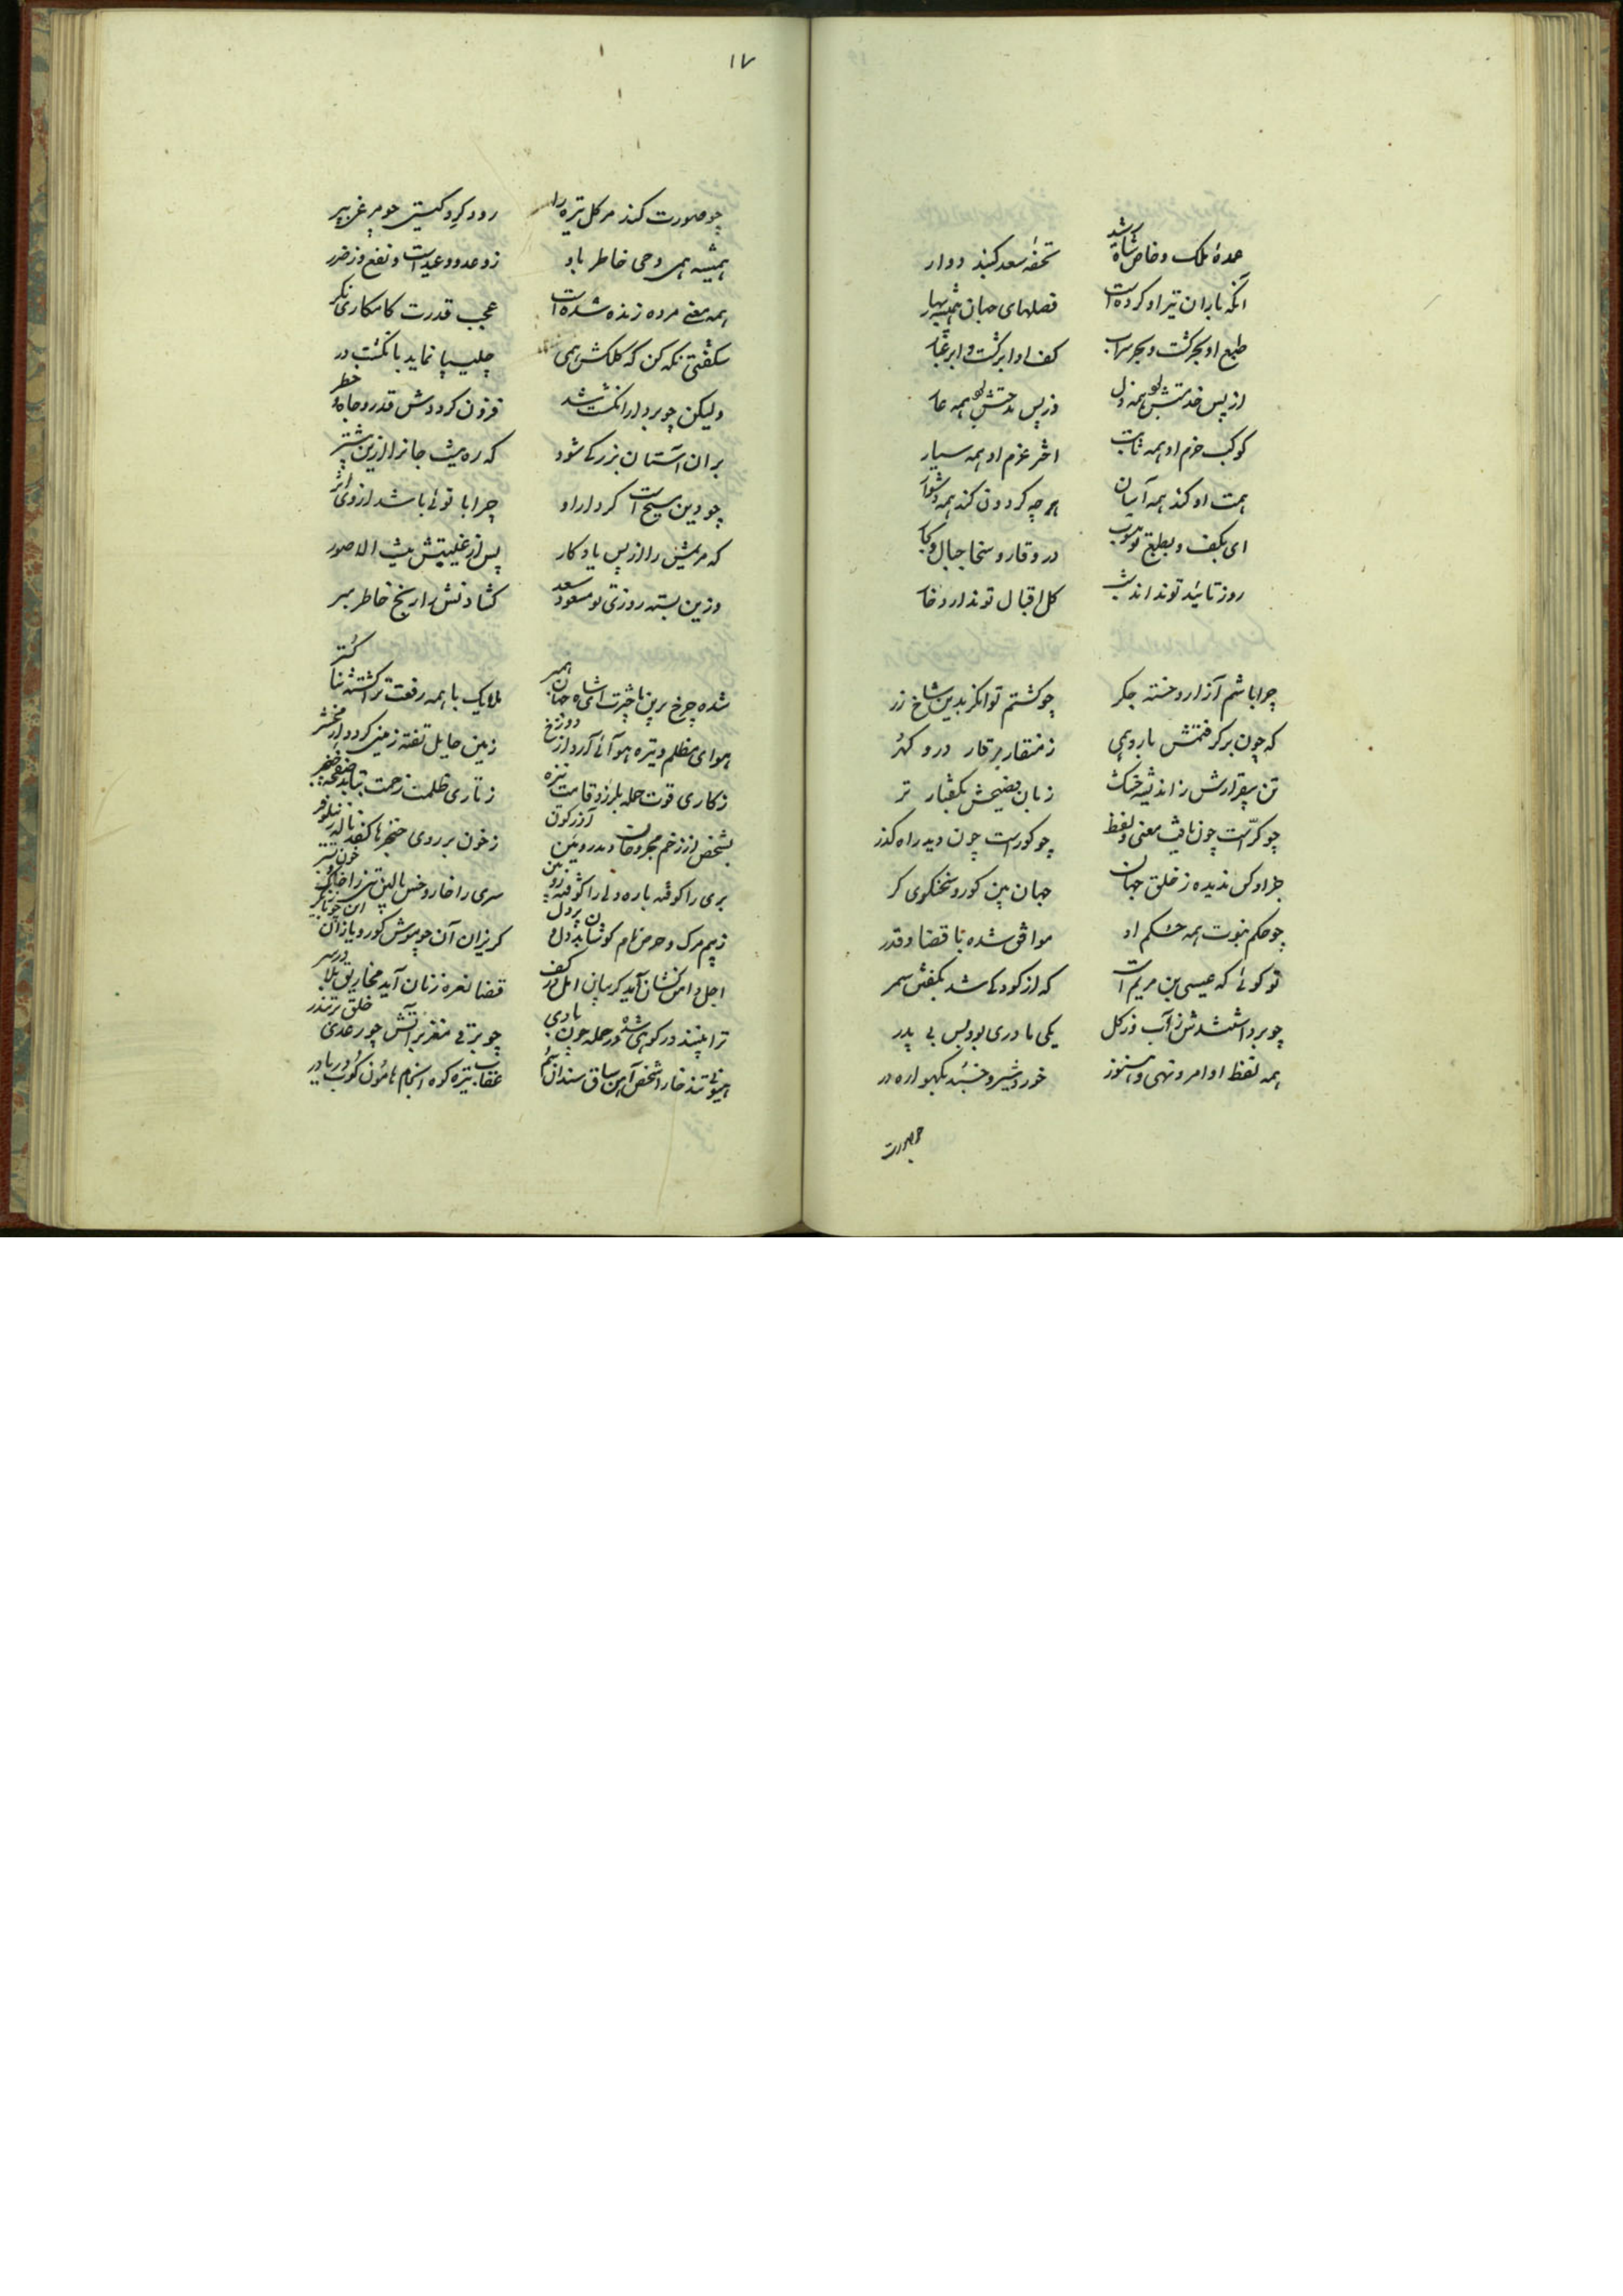 عمدهٔ ملک و خاص شاه رشید تحفهٔ سعد گنبد دوار
آنکه باران تیر او کرده است فصلهای جهان همیشه بهار
طبع او بحر گشت و بحر سراب کف او ابر گشت و ابر غبار
از پس خدمتش همه دل وز پس مدحتش همه
کوکب حزم او همه ثابت اختر عزم او همه سیار
همت او کند همه آسان هر چه گردون کند همه دشوار
ای بکف و بطبع تو منسوب در وقار و سخا جبال و بحار
روز تائید تو نداند شب گل اقبال تو ندارد خار
چرا باشم آزار و خسته جگر چو گشتم توانگر بدین شاخ زر
که چون برگرفتمش بارد همی ز منقار برقار در و گهر
تن بیقرارش ز اندیشه خشک زبان فصیحش بگفتار تر
چو کر است چون یافت معنی و لفظ چو کور است چون دید راه گذر
جز او کس ندیده ز خلق جهان جهان بین کور و سخنگوی کر
چو حکم نبوت همه حکم او موافق شده با قضا و قدر
تو گوئی که عیسی بن مریم است که از کودکی شد بگفتن سمر
چو برداشتندش ز آب و ز گل یکی مادری بود بس بی پدر
همه لفظ او امر و نهی و هنوز خورد شیر و خسبد بگهواره در
چو صورت
۱۷
چو صورت کند مر گل تیره را رود گرد گیتی چو مرغ بپر
همیشه همی وحی خاطر باو ز وعد و وعید است و نفع و ز ضرر
همه معنی مرده زنده شده است عجب قدرت کامکاری نگر
شگفتی نگه کن که کلکش همی چلیپا نماید بانگشت در
ولیکن چو بردار انگشت شد فزون گرددش قدر و جاه و خطر
بران آستان بزرگی شود که ره نیست جانرا ازین بیشتر
چو دین مسیح است کردار او چرا با توئی باشد از وی اثر
که مریمش را از پس یادگار پس از غیبتش پشت الا صور
وزین بسته روزی تو مسعود سعد گشادنش را رنج خاطر مبر
شده چرخ برین ناچیزت ای شاه جهان همبر ملایک با همه رفعت ترا گشته ثنا گستر
هوای مظلم و تیره هوائی آرد از دوزخ زمین حایل تفته زمینی گردد از محشر
ز کاری قوت حمله بلرزد قامت نیزه ز تاری ظلمت زحمت بتابد صفحه خنجر
بشخص از زخم مجروحان دمد روئین آذرگون ز خون بر روی خنجرها کفد ناله نیلوفر
بری را کوفته باره دلی را کوفته زوبین سری را خار و خس بالین تنی را خاک و خون بستر
ز بیم مرگ و حرص نام کوشا بددل و پردل گریزان آن چو موش کور و یازان این چو مار گر
اجل دامن کشان آید گریبان امل در کف قضا نعره زنان آید مخاریق بلا در سر
ترا بینند در کوهی شده در حمله چون بادی چو برق مغفر بر آتش چو رعدی خلق پر تندر
هیونی تند خارا شخص آهن ساق سندان سم عقاب تیره کوه انجام هامون کوب دریا در